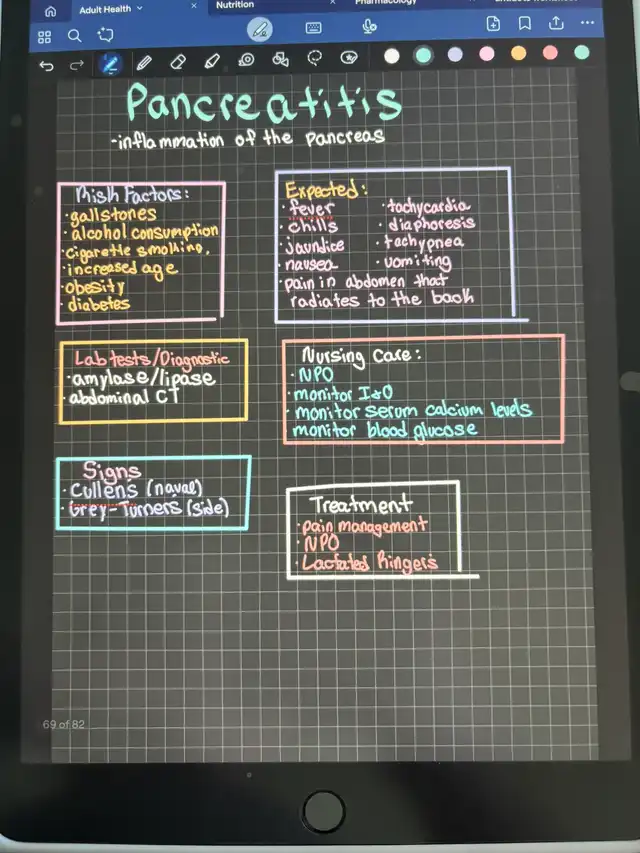 Adult Health
Nutrition
Pharmacology
Pancreatitis
-inflammation of the pancreas
Risk Factors:
·gallstones
·alcohol consumption
·cigarette smoking,
·increased age
·obesity
·diabetes
Expected:
·fever
·chills
·jaundice
·nausea
·tachycardia
·diaphoresis
·tachypnea
·vomiting
·pain in abdomen that
radiates to the back
Lab tests/Diagnostic
·amylase/lipase
·abdominal CT
Nursing Care:
·NPO
·monitor I&O
·monitor serum calcium levels
monitor blood glucose
Signs
·Cullens (naval)
·Grey-Turners (side)
Treatment
·pain management
·NPO
·Lactated Ringers
69 of 82